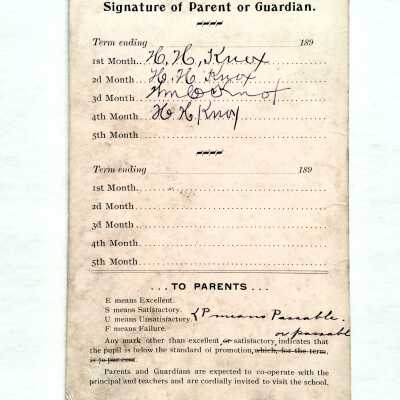 Signature of Parent or Guardian.
Term ending 189
1st Month. H. H. Knox
2d Month H. H. Knox
3d Month Wm C Knox
4th Month H. H. Knox
5th Month
Term ending 189
1st Month
2d Month
3d Month
4th Month
5th Month
...TO PARENTS...
E means Excellent.
S means Satisfactory.
U means Unsatisfactory. P means Passable.
F means Failure. or passable
Any mark other than excellent or satisfactory indicates that
the pupil is below the standard of promotion, which, for the term,
is 70 per cent.
Parents and Guardians are expected to co-operate with the
principal and teachers and are cordially invited to visit the school.